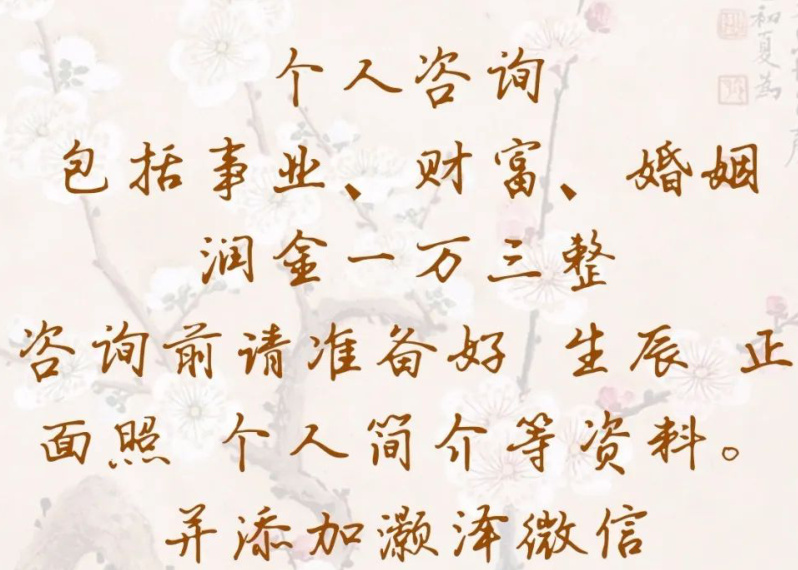 个人咨询
包括事业、财富、婚姻
润金一万三整
咨询前请准备好 生辰 正
面照 个人简介等资料。
并添加灏泽微信
初夏为